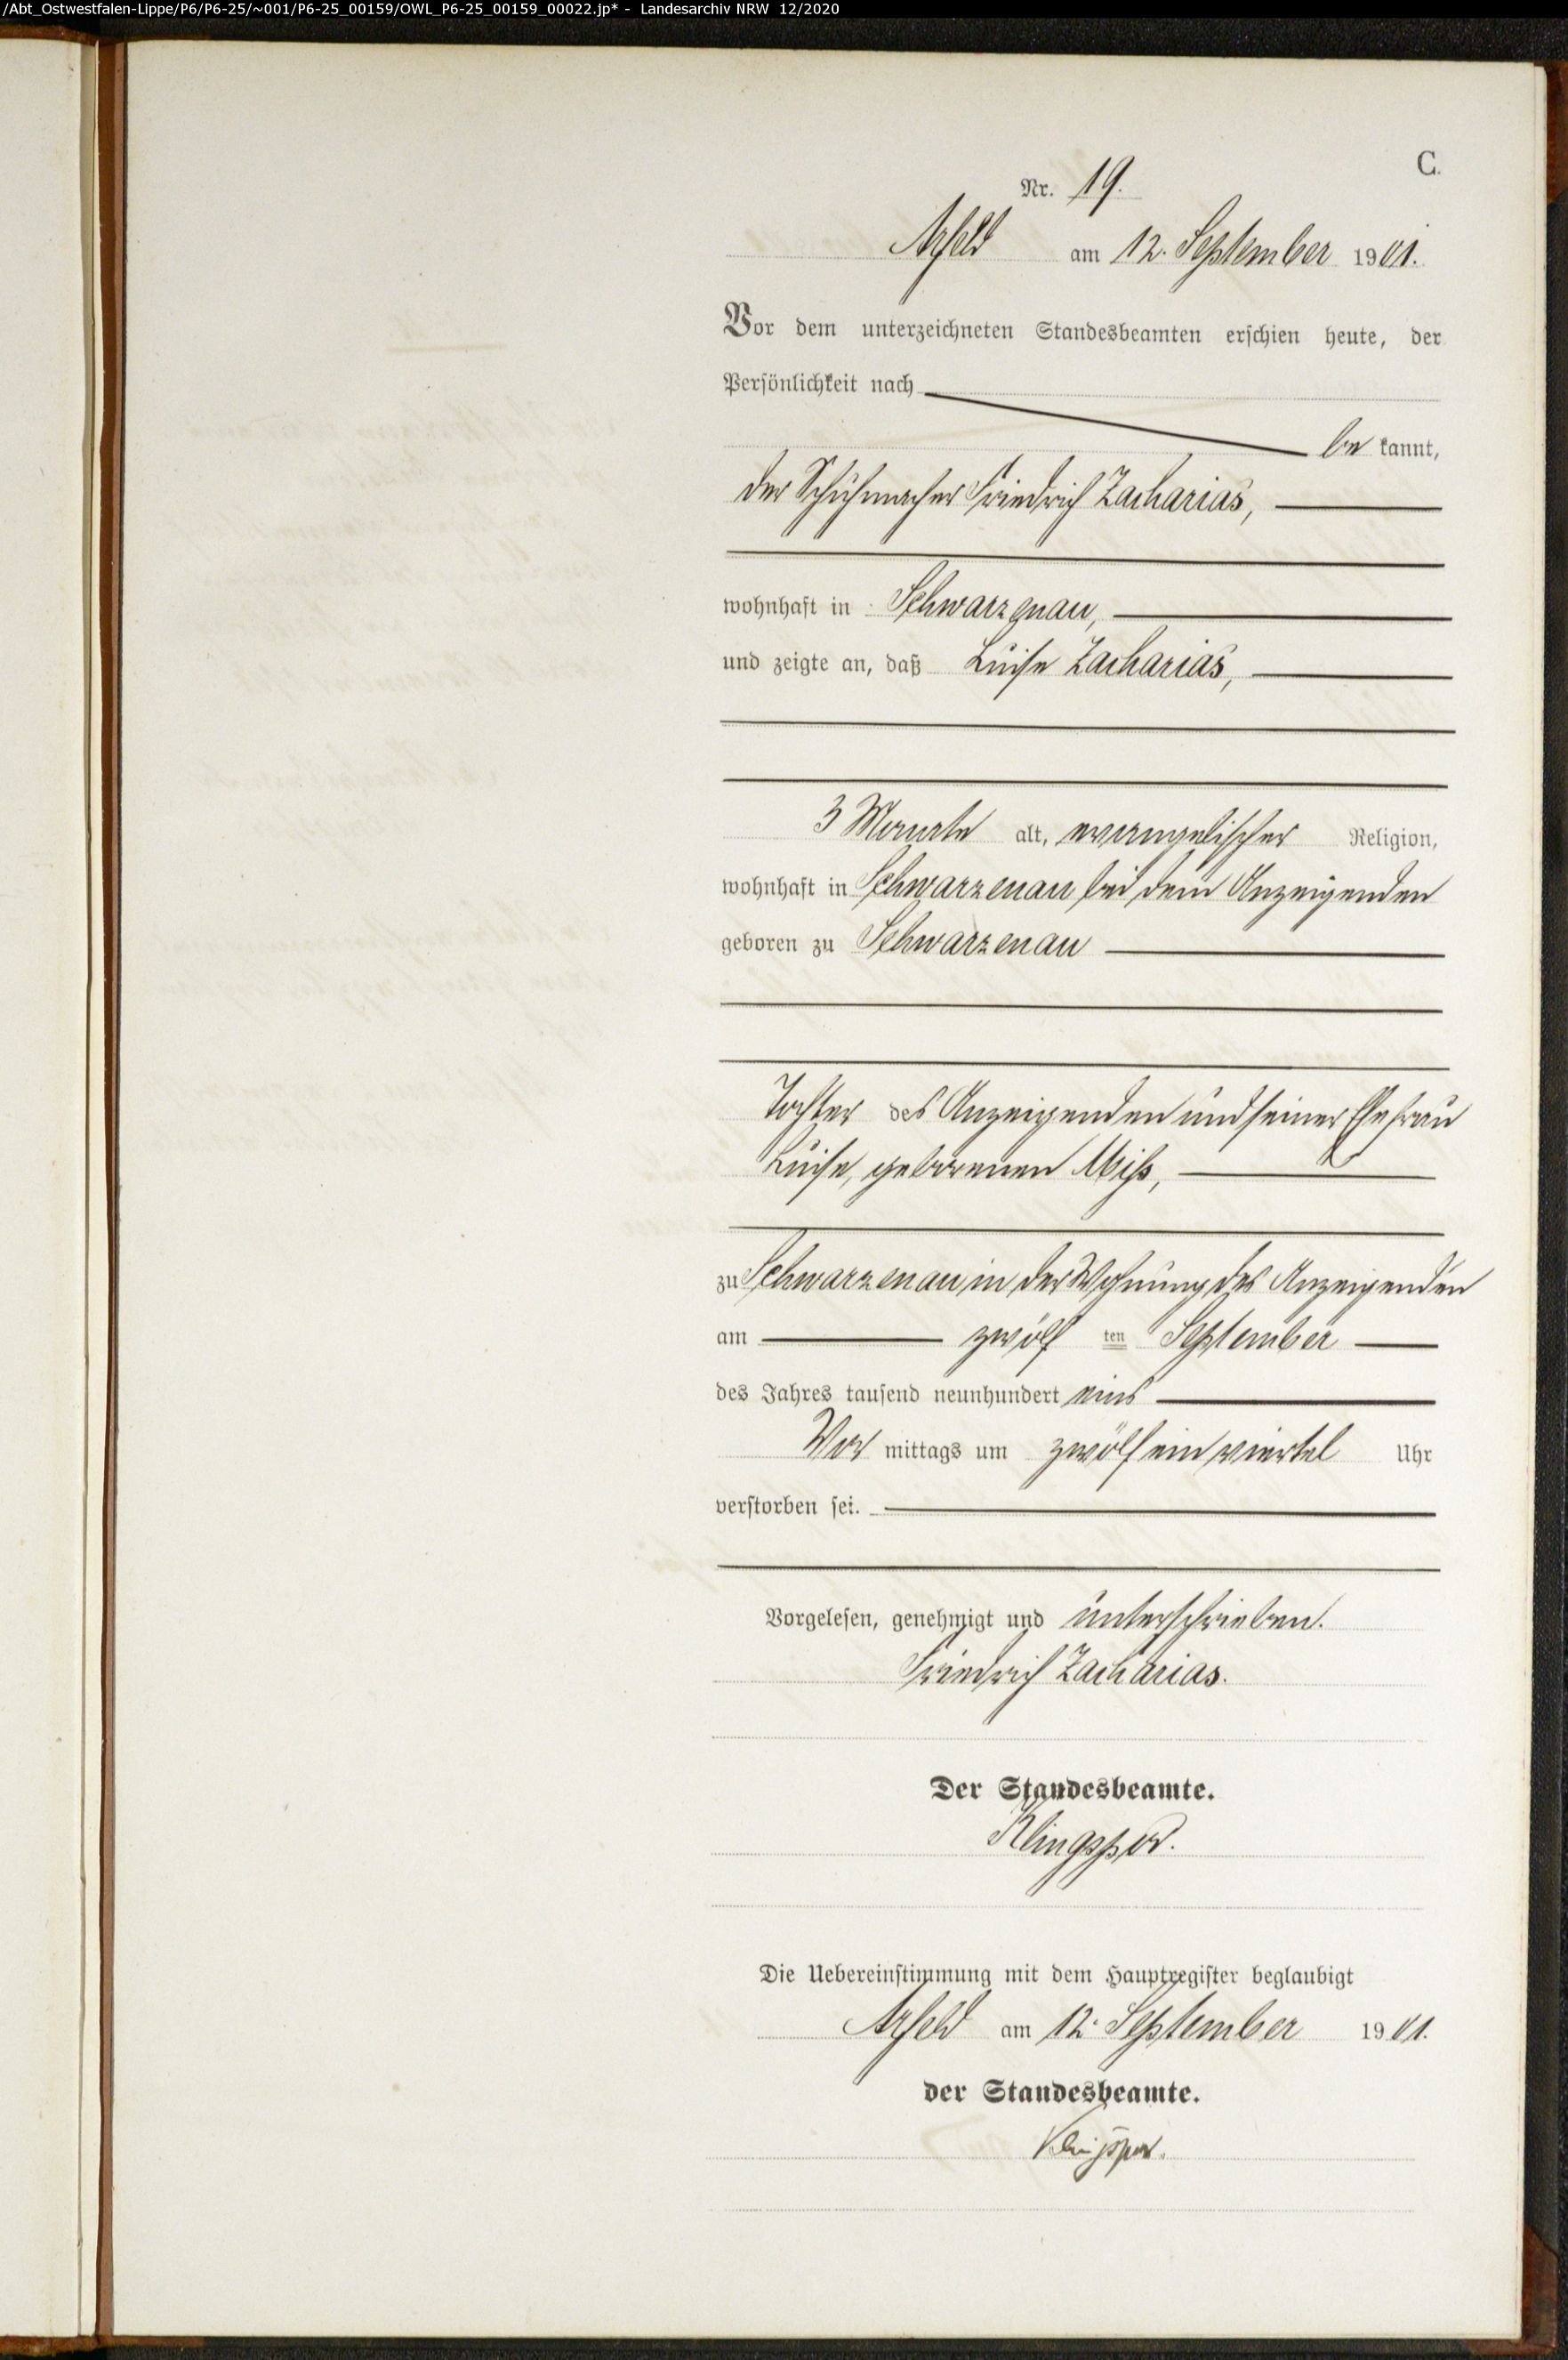 /Abt_Ostwestfalen-Lippe/P6/P6-25/~001/P6-25_00159/OWL_P6-25_00159_00022.jp* - Landesarchiv NRW 12/2020
C.
Nr. 19.
Arfeld am 12. September 1901.
Vor dem unterzeichneten Standesbeamten erschien heute, der
Persönlichkeit nach
be kannt,
der Schuhmacher Friedrich Zacharias,
wohnhaft in Schwarzenau,
und zeigte an, daß Luise Zacharias,
3 Monate alt, evangelischer Religion,
wohnhaft in Schwarzenau bei dem Anzeigenden
geboren zu Schwarzenau
Tochter des Anzeigenden und seiner Ehefrau
Luise, geborenen
zu Schwarzenau in der Wohnung des Anzeigenden
am zwölf ten September
des Jahres tausend neunhundert eins
Vor mittags um zwölf ein viertel Uhr
verstorben sei.
Vorgelesen, genehmigt und unterschrieben.
Friedrich Zacharias.
Der Standesbeamte.
Klingspor.
Die Uebereinstimmung mit dem Hauptregister beglaubigt
Arfeld am 12. September 1901.
der Standesbeamte.
Klingspor.